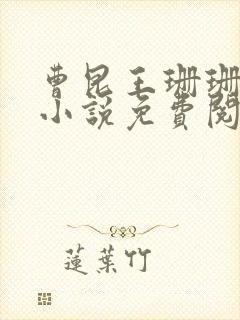 曹昆王珊珊
小說免費閱
蓮葉竹